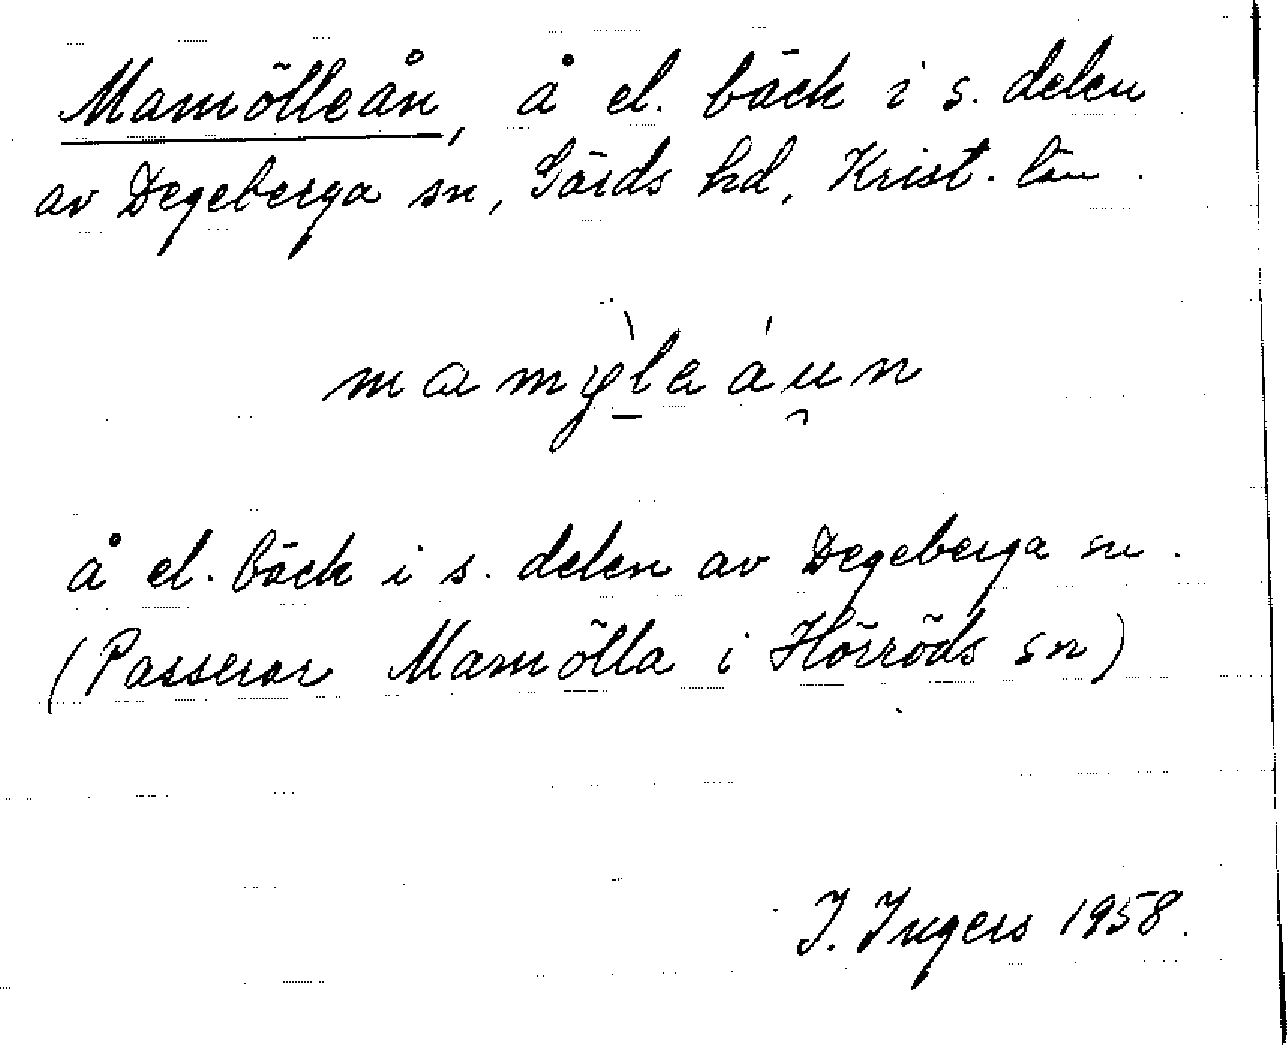 Mamölleån, å el. bäck i s. delen
av Degeberga sn, Gärds hd, Krist. län.
mamỳleáun
å el. bäck i s. delen av Degeberga sn.
(Passerar Mamölla i Hörröds sn)
I. Ingers 1958.